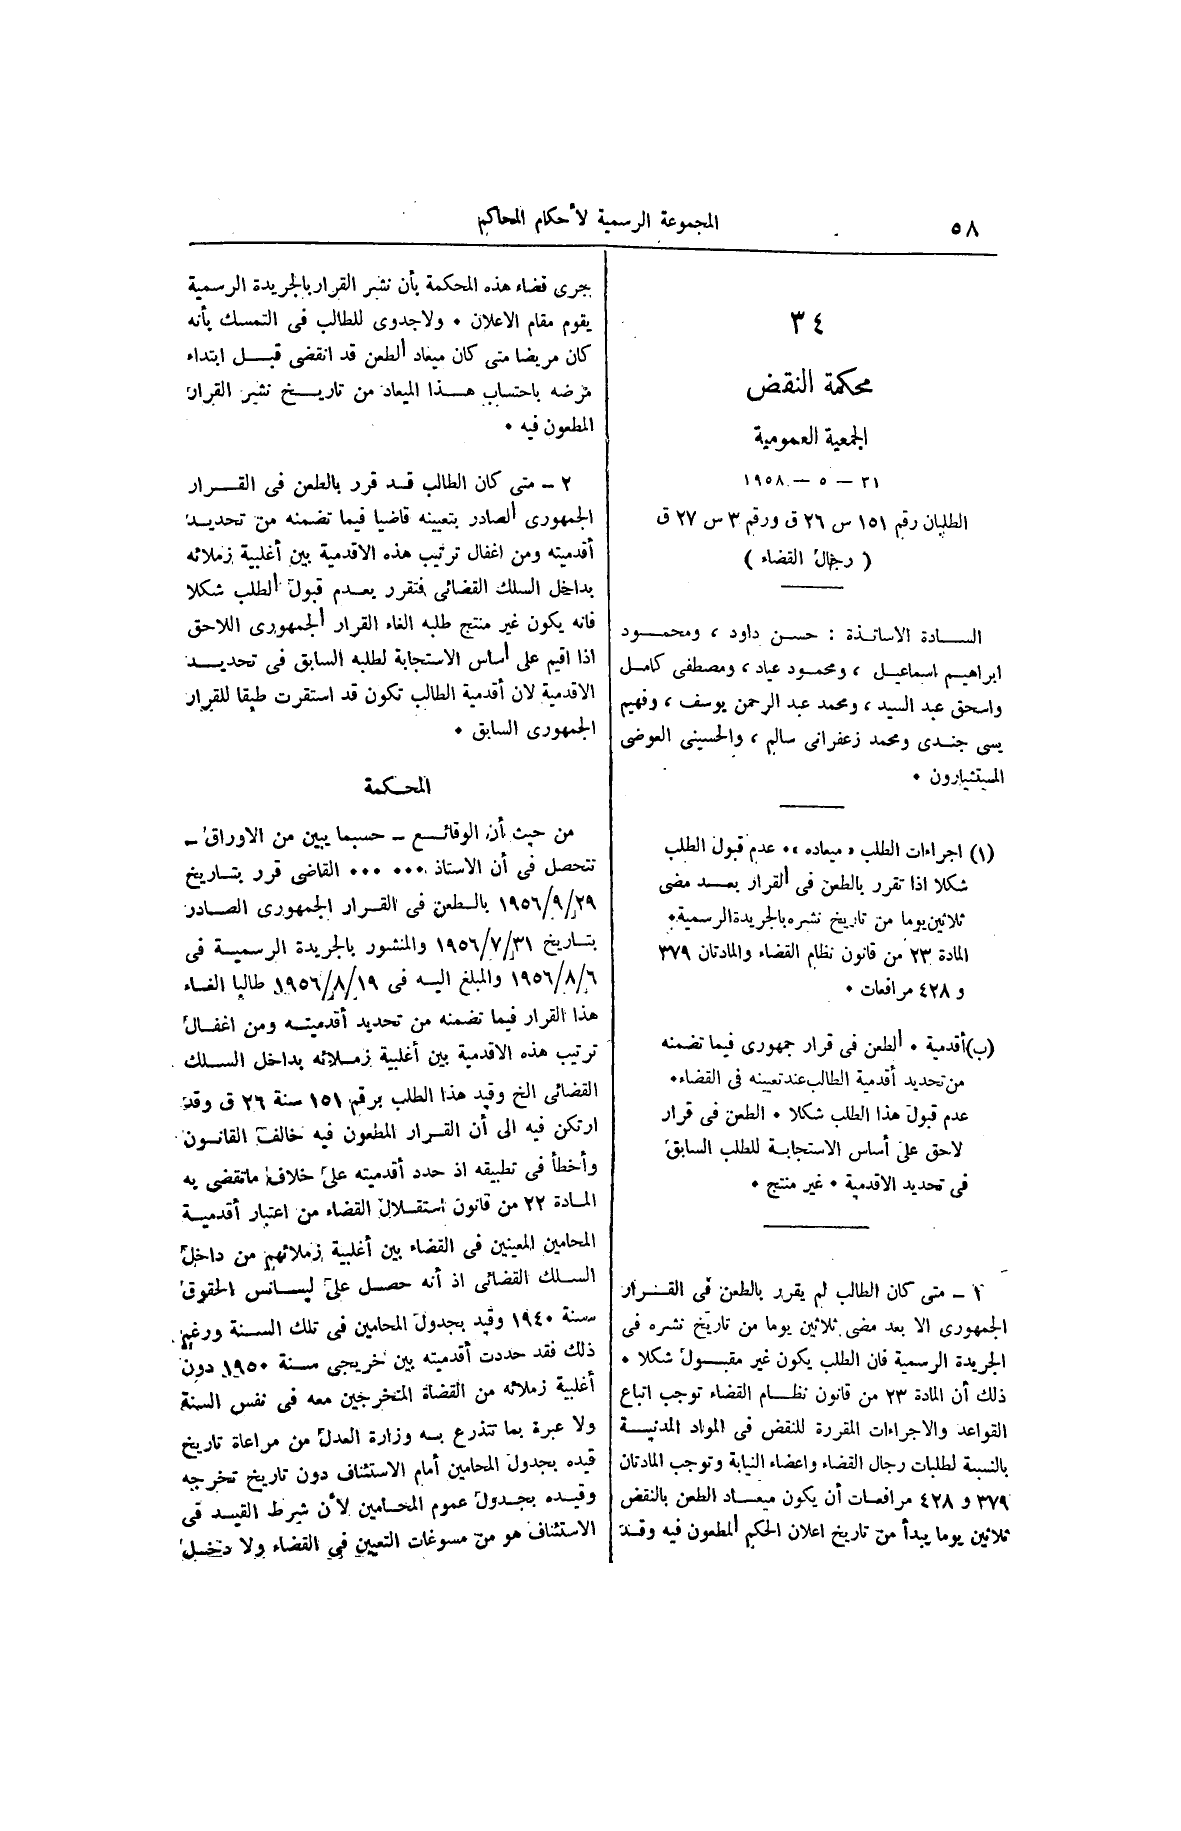 ٥٨
المجموعة الرسمية لأحكام المحاكم
٣٤
محكمة النقض
الجمعية العمومية
٣١ – ٥ – ١٩٥٨
الطلبان رقم ١٥١ س ٢٦ ق ورقم ٣ س ٢٧ ق
( رجال القضاء )
السادة الاساتذة : حسن داود ، ومحمود
ابراهيم اسماعيل ، ومحمود عياد ، ومصطفى كامل
واسحق عبد السيد ، ومحمد عبد الرحمن يوسف ، وفهيم
يسى جندى ومحمد زعفرانى سالم ، والحسينى العوضى
المستشارون •
(١) اجراءات الطلب « ميعاده »• عدم قبول الطلب
شكلا اذا تقرر بالطعن فى القرار بعد مضى
ثلاثين يوما من تاريخ نشره بالجريدة الرسمية•
المادة ٢٣ من قانون نظام القضاء والمادتان ٣٧٩
و ٤٢٨ مرافعات •
(ب) أقدمية • الطعن فى قرار جمهورى فيما تضمنه
من تحديد أقدمية الطالب عند تعيينه فى القضاء•
عدم قبول هذا الطلب شكلا • الطعن فى قرار
لاحق على أساس الاستجابة للطلب السابق
فى تحديد الاقدمية • غير منتج •
١ – متى كان الطالب لم يقرر بالطعن فى القرار
الجمهورى الا بعد مضى ثلاثين يوما من تاريخ نشره فى
الجريدة الرسمية فان الطلب يكون غير مقبول شكلا •
ذلك أن المادة ٢٣ من قانون نظام القضاء توجب اتباع
القواعد والاجراءات المقررة للنقض فى المواد المدنية
بالنسبة لطلبات رجال القضاء واعضاء النيابة وتوجب المادتان
٣٧٩ و ٤٢٨ مرافعات أن يكون ميعاد الطعن بالنقض
ثلاثين يوما يبدأ من تاريخ اعلان الحكم المطعون فيه وقد
جرى قضاء هذه المحكمة بأن نشر القرار بالجريدة الرسمية
يقوم مقام الاعلان • ولاجدوى للطالب فى التمسك بأنه
كان مريضا متى كان ميعاد الطعن قد انقضى قبل ابتداء
مرضه باحتساب هذا الميعاد من تاريخ نشر القرار
المطعون فيه •
٢ – متى كان الطالب قد قرر بالطعن فى القرار
الجمهورى الصادر بتعيينه قاضيا فيما تضمنه من تحديد
أقدميته ومن اغفال ترتيب هذه الاقدمية بين أغلبية زملائه
بداخل السلك القضائى فتقرر بعدم قبول الطلب شكلا
فانه يكون غير منتج طلبه الغاء القرار الجمهورى اللاحق
اذا اقيم على أساس الاستجابة لطلبه السابق فى تحديد
الاقدمية لان أقدمية الطالب تكون قد استقرت طبقا للقرار
الجمهورى السابق •
المحكمة
من حيث أن الوقائع – حسبما يبين من الاوراق –
تتحصل فى أن الاستاذ ••• ••• القاضى قرر بتاريخ
١٩٥٦/٩/٢٩ بالطعن فى القرار الجمهورى الصادر
بتاريخ ١٩٥٦/٧/٣١ والمنشور بالجريدة الرسمية فى
١٩٥٦/٨/٦ والمبلغ اليه فى ١٩٥٦/٨/١٩ طالبا الغاء
هذا القرار فيما تضمنه من تحديد أقدميته ومن اغفال
ترتيب هذه الاقدمية بين أغلبية زملائه بداخل السلك
القضائى الخ وقيد هذا الطلب برقم ١٥١ سنة ٢٦ ق وقد
ارتكن فيه الى أن القرار المطعون فيه خالف القانون
وأخطأ فى تطبيقه اذ حدد أقدميته على خلاف ماتقضى به
المادة ٢٢ من قانون استقلال القضاء من اعتبار أقدمية
المحامين المعينين فى القضاء بين أغلبية زملائهم من داخل
السلك القضائى اذ أنه حصل على ليسانس الحقوق
سنة ١٩٤٠ وقيد بجدول المحامين فى تلك السنة ورغم
ذلك فقد حددت أقدميته بين خريجى سنة ١٩٥٠ دون
أغلبية زملائه من القضاة المتخرجين معه فى نفس السنة
ولا عبرة بما تتذرع به وزارة العدل من مراعاة تاريخ
قيده بجدول المحامين أمام الاستئناف دون تاريخ تخرجه
وقيده بجدول عموم المحامين لأن شرط القيد فى
الاستئناف هو من مسوغات التعيين فى القضاء ولا دخل